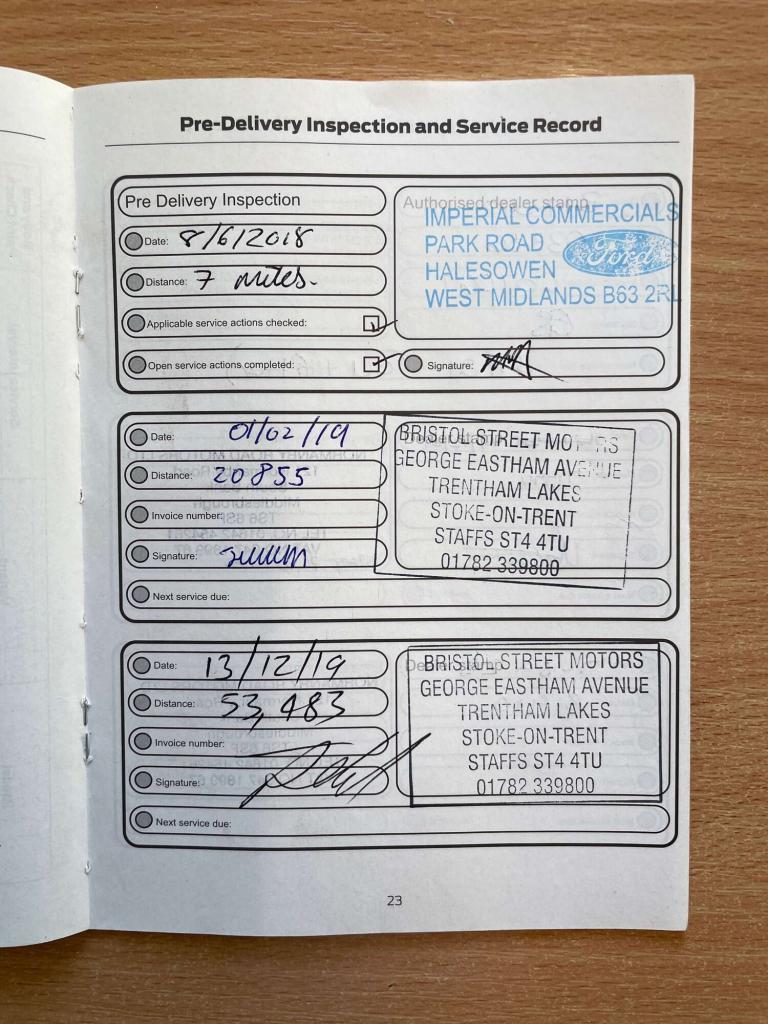 Pre-Delivery Inspection and Service Record
Pre Delivery Inspection
Date: 8/6/2018
Distance: 7 miles.
Applicable service actions checked:
Open service actions completed:
Authorised dealer stamp
IMPERIAL COMMERCIALS
PARK ROAD
HALESOWEN
WEST MIDLANDS B63 2RL
Ford
Signature:
Date: 01/02/19
Distance: 20855
Invoice number:
Signature:
Next service due:
Dealer stamp
BRISTOL STREET MOTORS
GEORGE EASTHAM AVENUE
TRENTHAM LAKES
STOKE-ON-TRENT
STAFFS ST4 4TU
01782 339800
Date: 13/12/19
Distance: 53,483
Invoice number:
Signature:
Next service due:
Dealer stamp
BRISTOL STREET MOTORS
GEORGE EASTHAM AVENUE
TRENTHAM LAKES
STOKE-ON-TRENT
STAFFS ST4 4TU
01782 339800
23